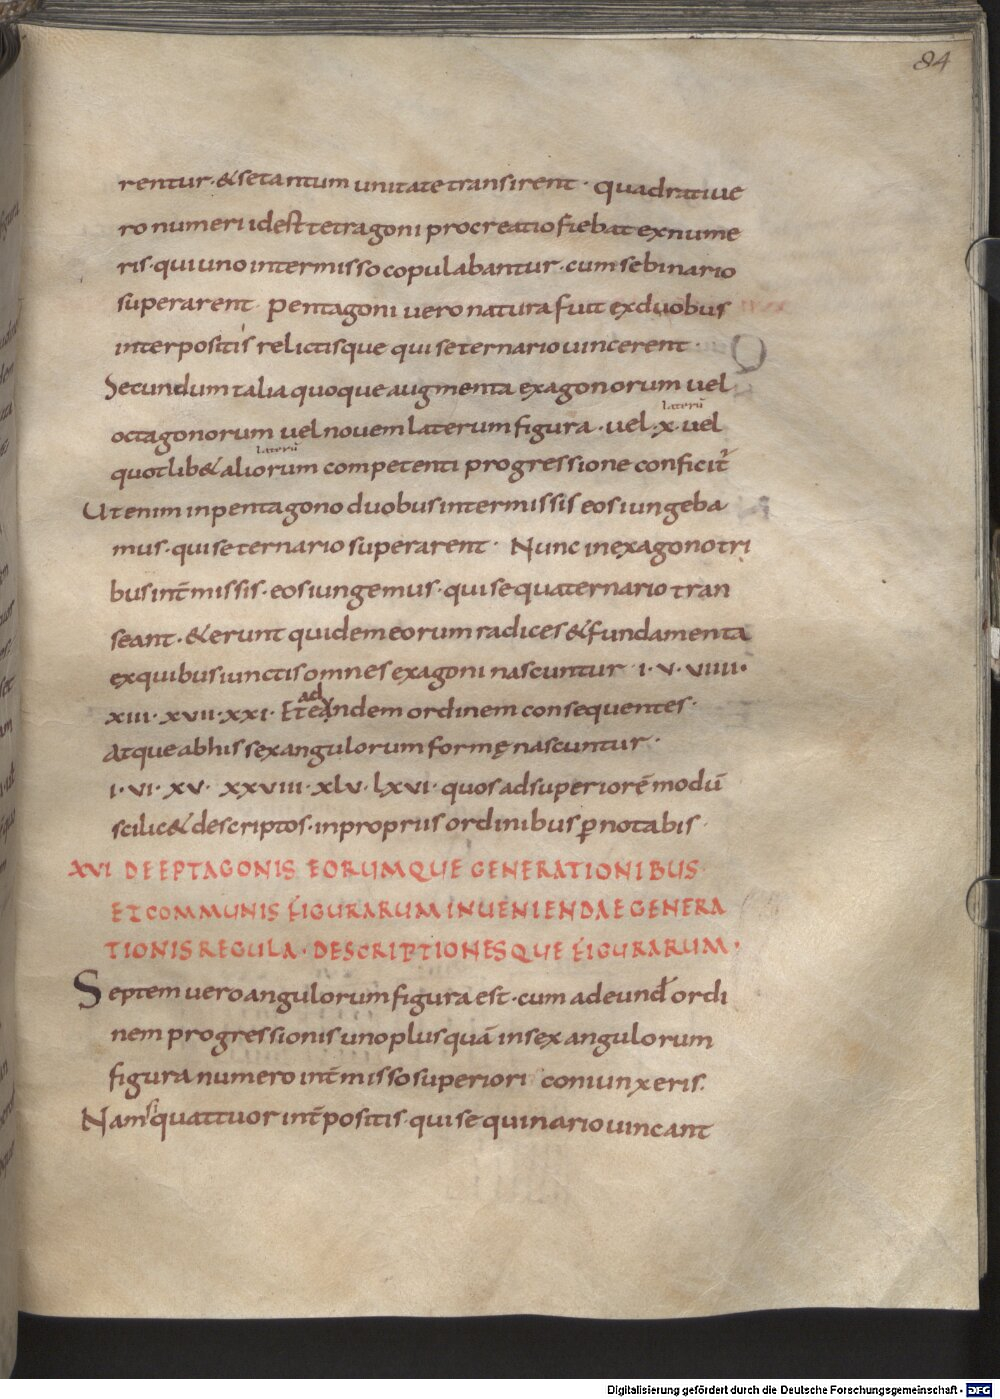 84
rentur · & se tantum unitate transirent · quadrati ue
ro numeri id est tetragoni procreatio fiebat ex nume
ris · qui uno intermisso copulabantur · cum se binario
superarent · Pentagoni uero natura fuit ex duobus
interpositis relictisque qui se ternario uincerent ·
Secundum talia quoque augmenta exagonorum uel
laterū
octagonorum uel nouem laterum figura · uel · x · uel
laterū
quotlib& aliorum competenti progressione conficit᷑
Ut enim in pentagono duobus intermissis eos iungeba
mus · qui se ternario superarent · Nunc in exagono tri
bus int̄missis · eos iungemus · qui se quaternario tran
seant · & erunt quidem eorum radices & fundamenta
ex quibus iunctis omnes exagoni nascuntur · i · v · viiii ·
ad
xiii · xvii · xxi · Et eandem ordinem consequentes ·
Atque ab his sexangulorum formę nascuntur ·
i · vi · xv · xxviii · xlv · lxvi · quos ad superiorē modū
scilic& descriptos · in propriis ordinibus p̱notabis ·
XVI DE EPTAGONIS EORUMQUE GENERATIONIBUS
ET COMMUNIS FIGURARUM INUENIENDAE GENERA
TIONIS REGULA · DESCRIPTIONESQUE FIGURARUM ·
Septem uero angulorum figura est · cum ad eund̄ ordi
nem progressionis uno plus quā in sex angulorum
figura numero int̄misso superiori coniunxeris.
Nam si quattuor int̄positis · qui se quinario uincant
Digitalisierung gefördert durch die Deutsche Forschungsgemeinschaft - DFG